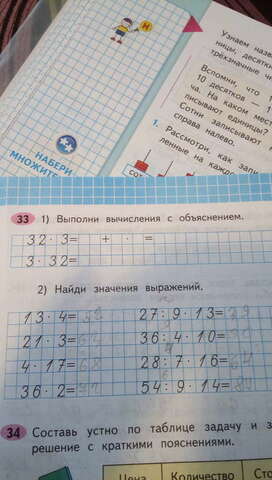 Н
Узнаем назв
ницы, десятк
трёхзначные
Вспомни, что
10 десятков — 1
ча. На каком мест
писывают единицы?
Сотни записывают
справа налево.
1. Рассмотри, как запи
ленные на каждо
НАБЕРИ
МНОЖИТЕ
СОТ
33 1) Выполни вычисления с объяснением.
32 · 3 = + · =
3 · 32 =
2) Найди значения выражений.
13 · 4 = 27 : 9 · 13 = 39
21 · 3 = 36 : 4 · 10 = 90
4 · 17 = 68 28 : 7 · 16 = 64
36 · 2 = 54 : 9 · 14 =
34 Составь устно по таблице задачу и з
решение с краткими пояснениями.
Цена Количество Сто